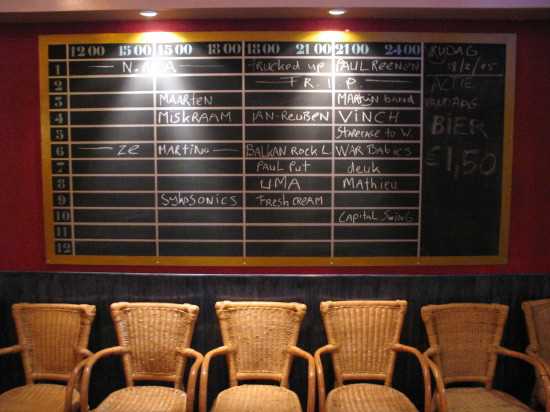 12 00 15 00 15 00 18 00 18 00 21 00 21 00 24 00
1 N.A.A TRUCKED UP PAUL REENEN
2 F R I P
3 MAARTEN MARTIJN BAND
4 MISKRAAM IAN-REUßEN VINCH
5 STAREASE TO W.
6 ZE MARTINO BALKAN ROCK L WAR BABIES
7 PAUL PUT DEUK
8 UMA MATHIEU
9 SYKOSONICS FRESH CREAM
10 CAPITAL SWING
11
12
VRIJDAG
18/2/05
ACTIE
VANDAAG
BIER
€1,50